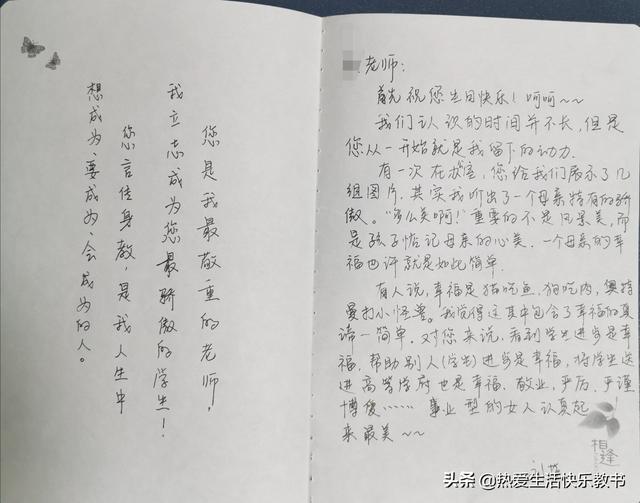 您是我最敬重的老师，
我立志成为您最骄傲的学生！
您言传身教，是我人生中
想成为、要成为、会成为的人。
老师：
首先祝您生日快乐！呵呵~~
我们认识的时间并不长，但是
您从一开始就是我留下的动力.
有一次在 ，您给我们展示了几
组图片.其实我听出了一个母亲特有的骄
傲。“多么美啊！”重要的不是风景美，而
是孩子惦记母亲的心美.一个母亲的幸
福也许就是如此简单.
有人说，幸福是猫吃鱼，狗吃肉，奥特
曼打小怪兽。我觉得这其中包含了幸福的真
谛—简单.对您来说，看到学生进步是幸
福.帮助别人(学生)进步是幸福，将学生送
进高等学府也是幸福.敬业，严厉.严谨
博爱……事业型的女人认真起
来最美~~
相逢
头条 @热爱生活快乐教书